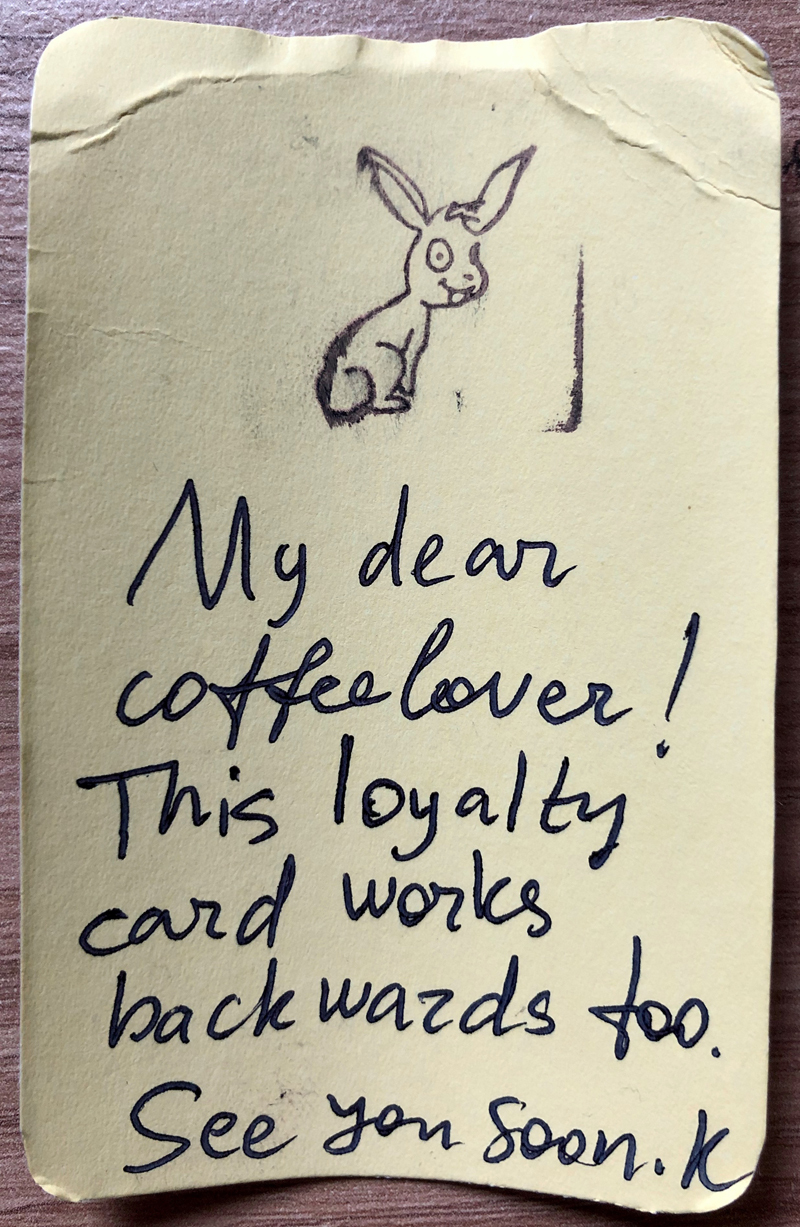 My dear
coffeelover!
This loyalty
card works
backwards too.
See you soon. K